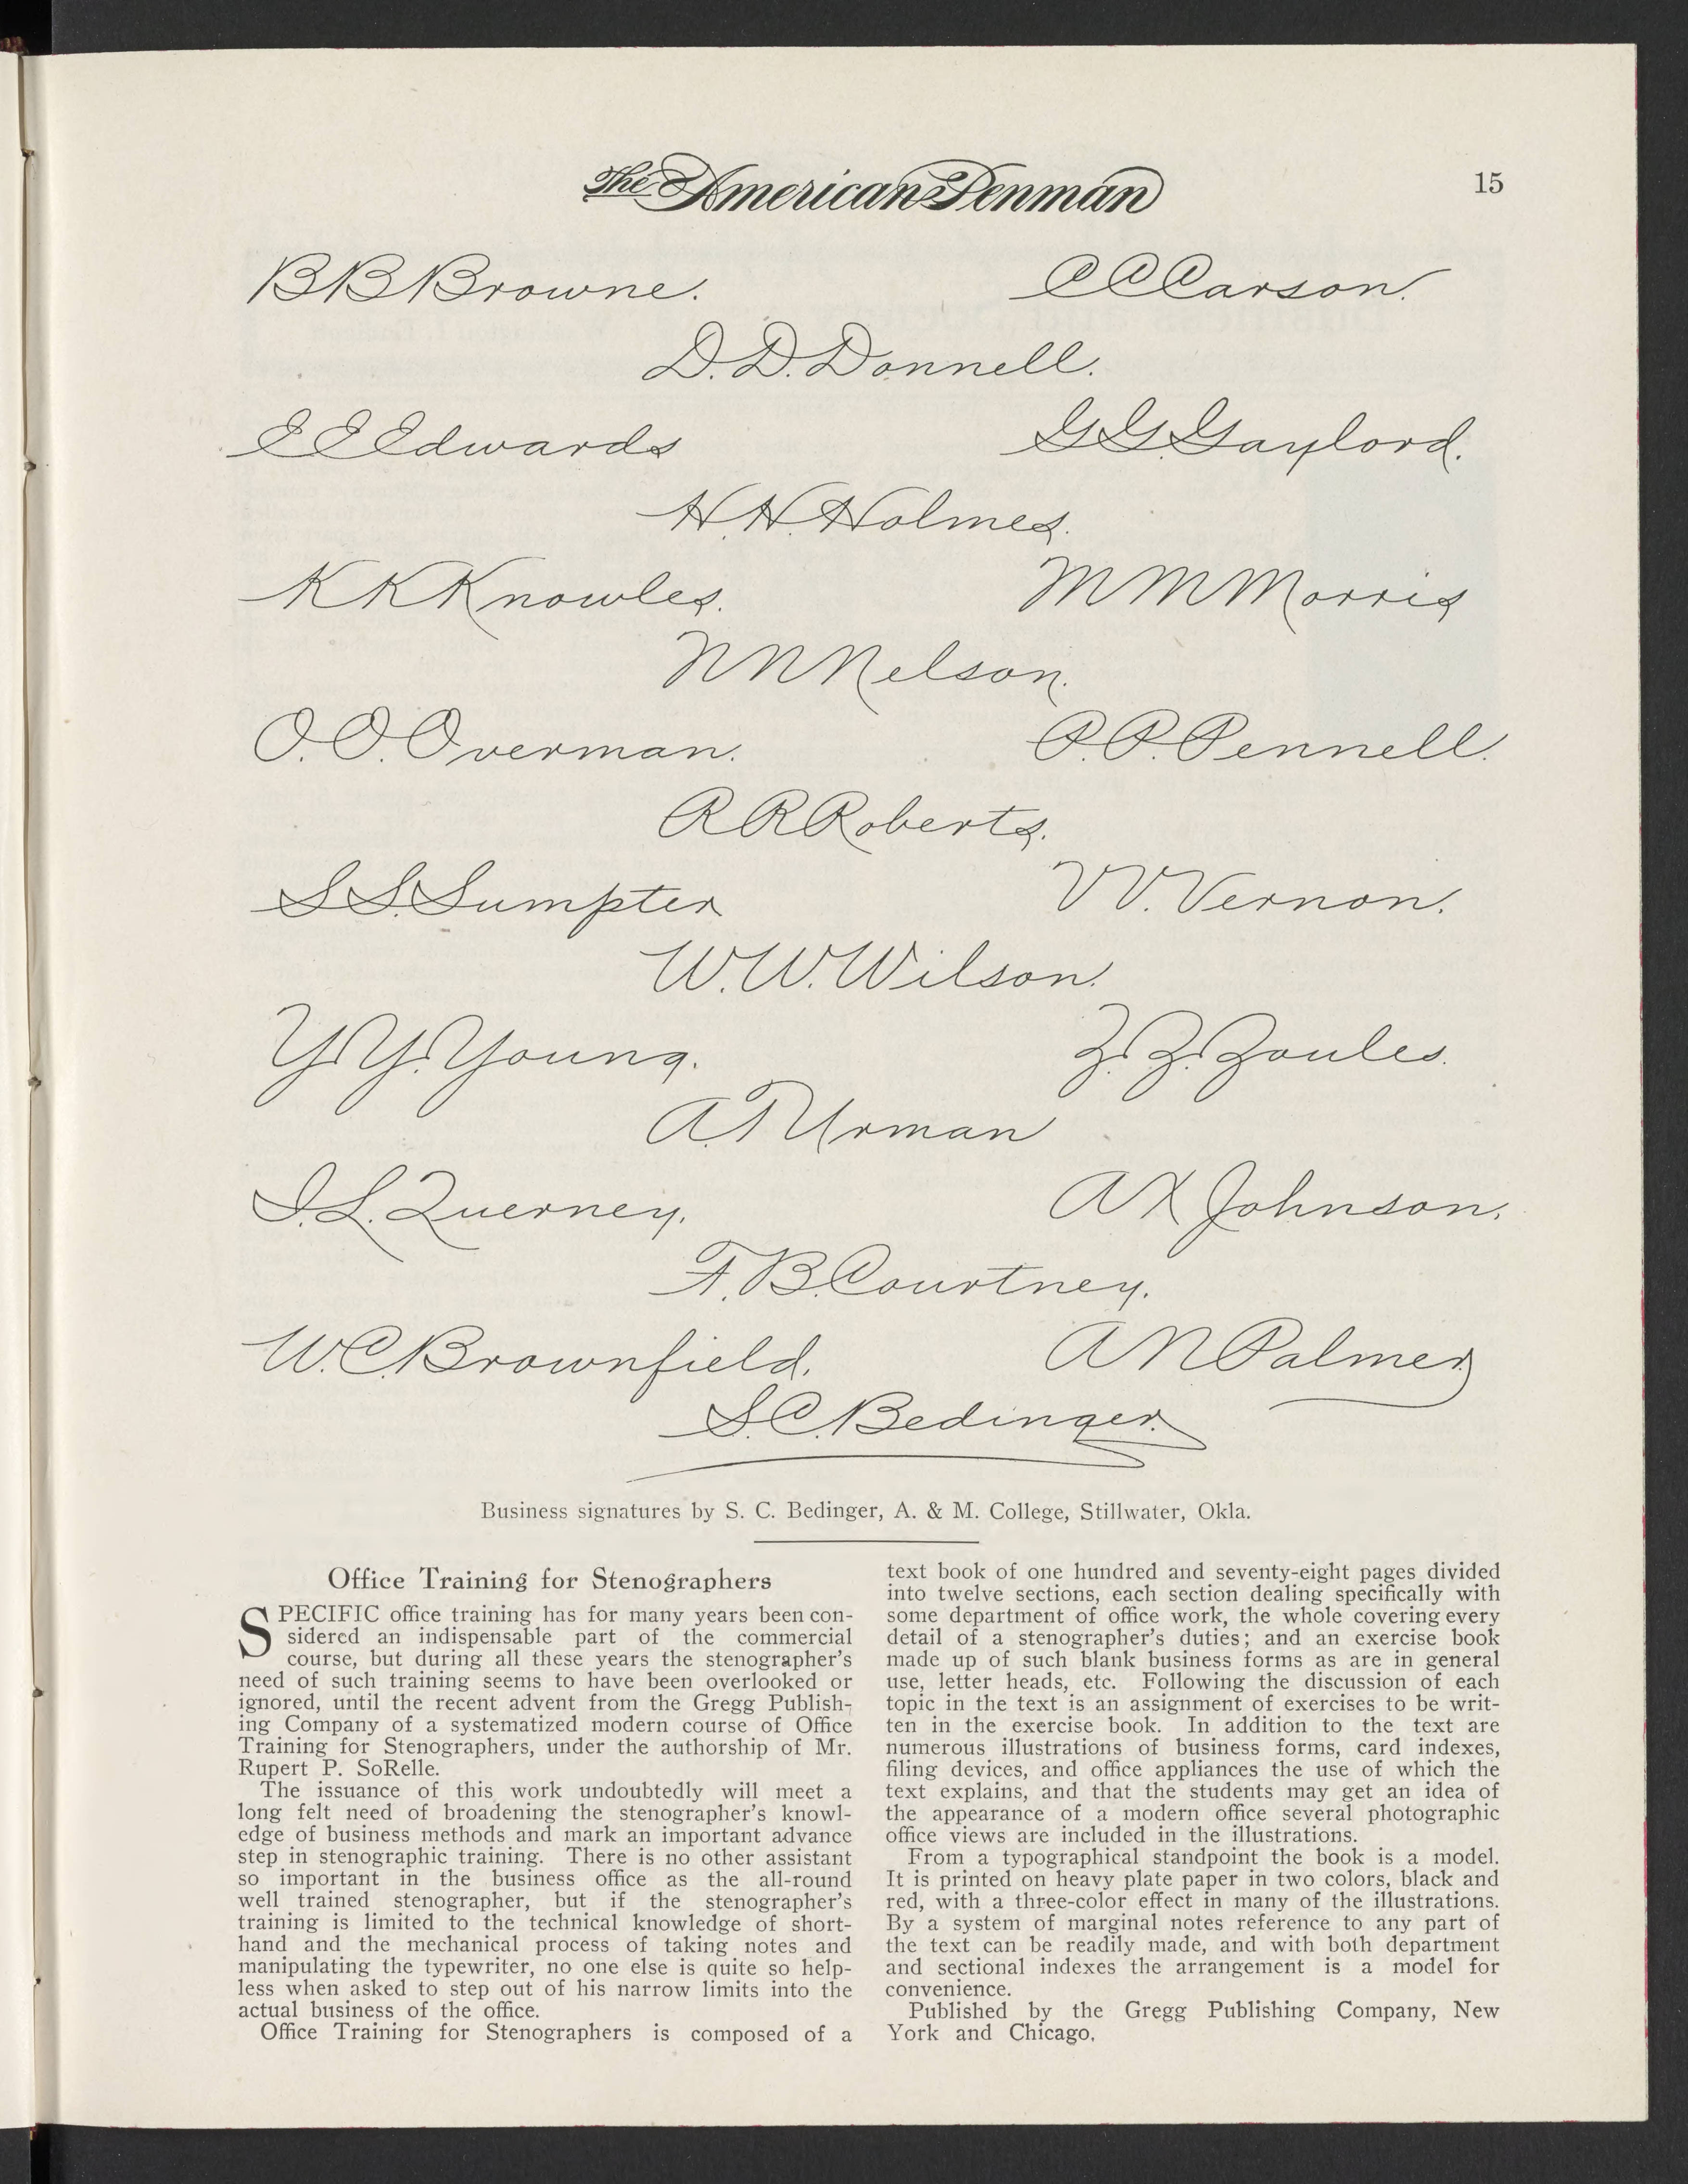 The American Penman
15
B B Browne.
C C Carson.
D. D. Donnell.
E E Edwards
G G. Gaylord.
H. H. Holmes.
K K Knowles.
M M Morris
N N Nelson.
O. O. Overman.
P. P. Pennell.
R R Roberts.
S S. Sumpter
V V. Vernon.
W. W. Wilson.
Y Y. Young.
Z. Z. Zoules.
A. T Urman
I. L. Querney.
A X Johnson.
F. B. Courtney.
W. C. Brownfield.
A N Palmer.
S. C. Bedinger.
Business signatures by S. C. Bedinger, A. & M. College, Stillwater, Okla.
Office Training for Stenographers
SPECIFIC office training has for many years been con-
sidered an indispensable part of the commercial
course, but during all these years the stenographer's
need of such training seems to have been overlooked or
ignored, until the recent advent from the Gregg Publish-
ing Company of a systematized modern course of Office
Training for Stenographers, under the authorship of Mr.
Rupert P. SoRelle.
The issuance of this work undoubtedly will meet a
long felt need of broadening the stenographer's knowl-
edge of business methods and mark an important advance
step in stenographic training. There is no other assistant
so important in the business office as the all-round
well trained stenographer, but if the stenographer's
training is limited to the technical knowledge of short-
hand and the mechanical process of taking notes and
manipulating the typewriter, no one else is quite so help-
less when asked to step out of his narrow limits into the
actual business of the office.
Office Training for Stenographers is composed of a
text book of one hundred and seventy-eight pages divided
into twelve sections, each section dealing specifically with
some department of office work, the whole covering every
detail of a stenographer's duties; and an exercise book
made up of such blank business forms as are in general
use, letter heads, etc. Following the discussion of each
topic in the text is an assignment of exercises to be writ-
ten in the exercise book. In addition to the text are
numerous illustrations of business forms, card indexes,
filing devices, and office appliances the use of which the
text explains, and that the students may get an idea of
the appearance of a modern office several photographic
office views are included in the illustrations.
From a typographical standpoint the book is a model.
It is printed on heavy plate paper in two colors, black and
red, with a three-color effect in many of the illustrations.
By a system of marginal notes reference to any part of
the text can be readily made, and with both department
and sectional indexes the arrangement is a model for
convenience.
Published by the Gregg Publishing Company, New
York and Chicago.